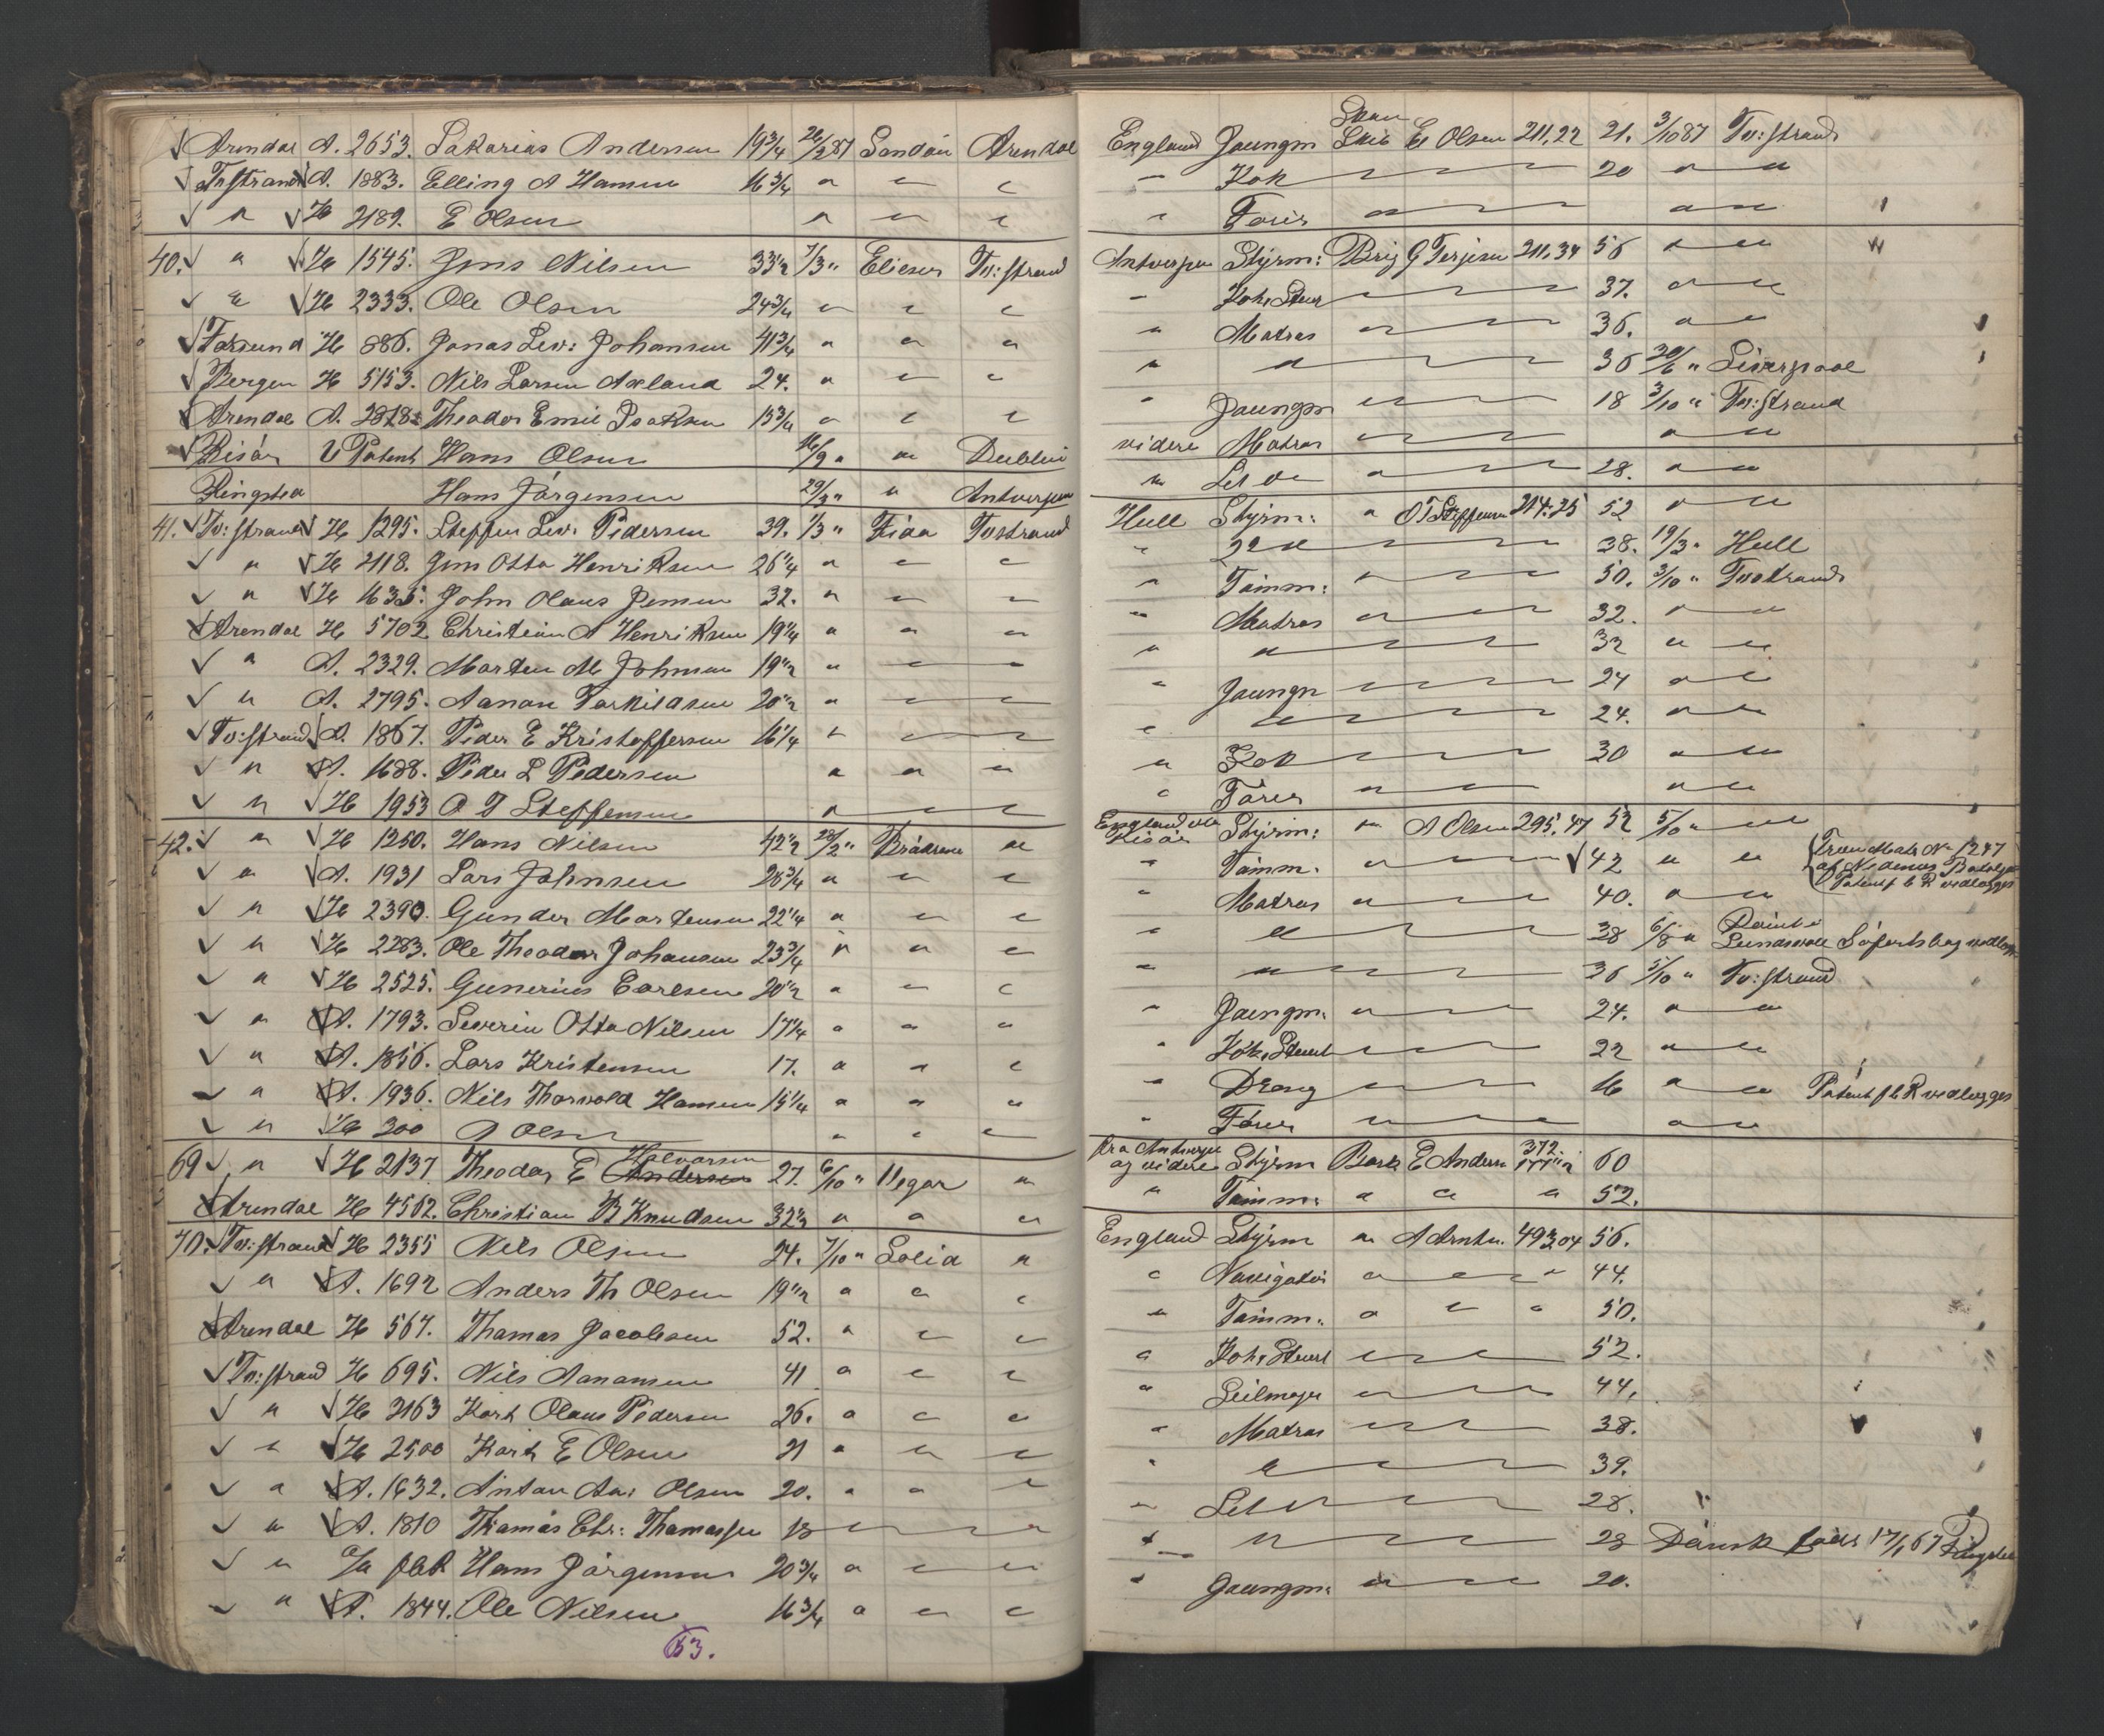 Arendal A. 2653. Sakarias Andersen 19 3/4 26/2 87 Sandøu Arendal
Tv:strand A. 1883. Elling A Hansen 16 3/4 " " "
" H 2189. E Olsen " " "
40. " H 1545. Jens Nilsen 33 1/2 7/3 " Elieser Tv:strand
" H 2333. Ole Olsen 24 3/4 " " "
Farsund H 886. Jonas Lew: Johansen 41 3/4 " " "
Bergen H 5153. Nils Larsen Axland 24. " " "
Arendal A. 2818. Theodor Emil Isaksen 15 3/4 " " "
Risør U Patent Hans Olsen 16/9 " " Dublin
Ringsted Hans Jørgensen 29/3 " " Antwerpen
41. Tv:strand H 1295. Steffen Lew: Pedersen 39. 1/3 " Fida Tvstrand
" H 2118. Jens Otto Henriksen 26 1/4 " " "
" H 1635. John Olaus Jensen 32. " " "
Arendal H 5702 Christian A Henriksen 19 1/4 " " "
" A. 2329. Morten M Johnsen 19 1/2 " " "
" A. 2795. Aanon Torkildsen 20 1/2 " " "
Tv:strand A. 1867. Peder E Kristoffersen 16 1/4 " " "
" A. 1688. Peder L Pedersen " " "
" H 1953 O T Steffensen " " "
42. " H 1250. Hans Nilsen 42 1/2 28/2 " Brødrene "
" A. 1931 Lars Johnsen 28 3/4 " " "
" H 2390. Gunder Mortensen 22 1/4 " " "
" H 2283. Ole Theodor Johansen 23 3/4 " " "
" H 2525. Gunerius Carlsen 20 1/2 " " "
" A. 1793. Severin Otto Nilsen 17 1/4 " " "
" A. 1856. Lars Kristensen 17. " " "
" A. 1936. Nils Thorvald Hansen 15 1/4 " " "
" H 300 A Olsen " " "
69 " H 2137 Theodor E Andersen Halvorsen 27. 6/10 " Vegar "
Arendal H 4562. Christian B Knudsen 32 1/2 " " "
70. Tv:strand H 2355 Nils Olsen 24. 7/10 " Solid "
" A. 1692 Anders Th Olsen 19 1/2 " " "
Arendal H 567. Thomas Jacobsen 52. " " "
Tv:strand H 695. Nils Aanansen 41 " " "
" H 2163 Karl Olaus Pedersen 26. " " "
" H 2500 Karl E Olsen 21 " " "
" A. 1632. Anton An: Olsen 20. " " "
" A. 1810 Thomas Chr: Thomassen 18 " " "
" Hans Jørgensen 20 3/4 " " "
" A. 1844. Ole Nilsen 16 3/4 " " "
53.
England Jaungm Skib El Olsen 211,22 21. 3/10 87 Tv:strand
" Kok " 20 " "
" Fører " " "
Antwerpen Styrm: Brig G Terjesen 211,34 56 " "
" Kok, Stuer " 37. " "
" Matros " 36. " "
" " " 36 20/6 " Liverpool
" Jaungm " 18 3/10 " Tv:strand
videre Matros " " "
" Let do " 28. " "
Hull Styrm: " O T Steffensen 214.25 52 " "
" 2den " 38. 19/3 " Hull
" Tømm: " 50. 3/10 " Tvstrand
" Matros " 32. " "
" " " 32 " "
" Jaungm " 24 " "
" " " 24. " "
" Kok " 30 " "
" Fører " " "
England via Risør Styrm: " A Olsen 295,47 52 5/10 " "
" Tømm. " 42 " " From Mats No 1247 af Nedenes Patent f b R vedlægges
" Matros " 40. " "
" " " 38 6/8 " Sundsvall Søfartsbog vedlagt
" " " 36 5/10 " Tv:strand
" Jaungm. " 24. " "
" Kok, Stuert " 22 " "
" Dreng " 16 " " Patent f b R vedlægges
" Fører " " "
fra Antwerpen og videre Styrm Bark E Anders 372 60
" Tømm: " " " 52.
England Styrm " A Arntzn. 493,04 56.
" Navigatør " " " 44.
" Tømm. " " " 50.
" Kok, Stuert " 52.
" Seilmager " 44.
" Matros " 38.
" " " 39.
" Let " 28.
" " " 28 Dansk født 17/1 67 Ringsted
" Jaungm. " " 20.